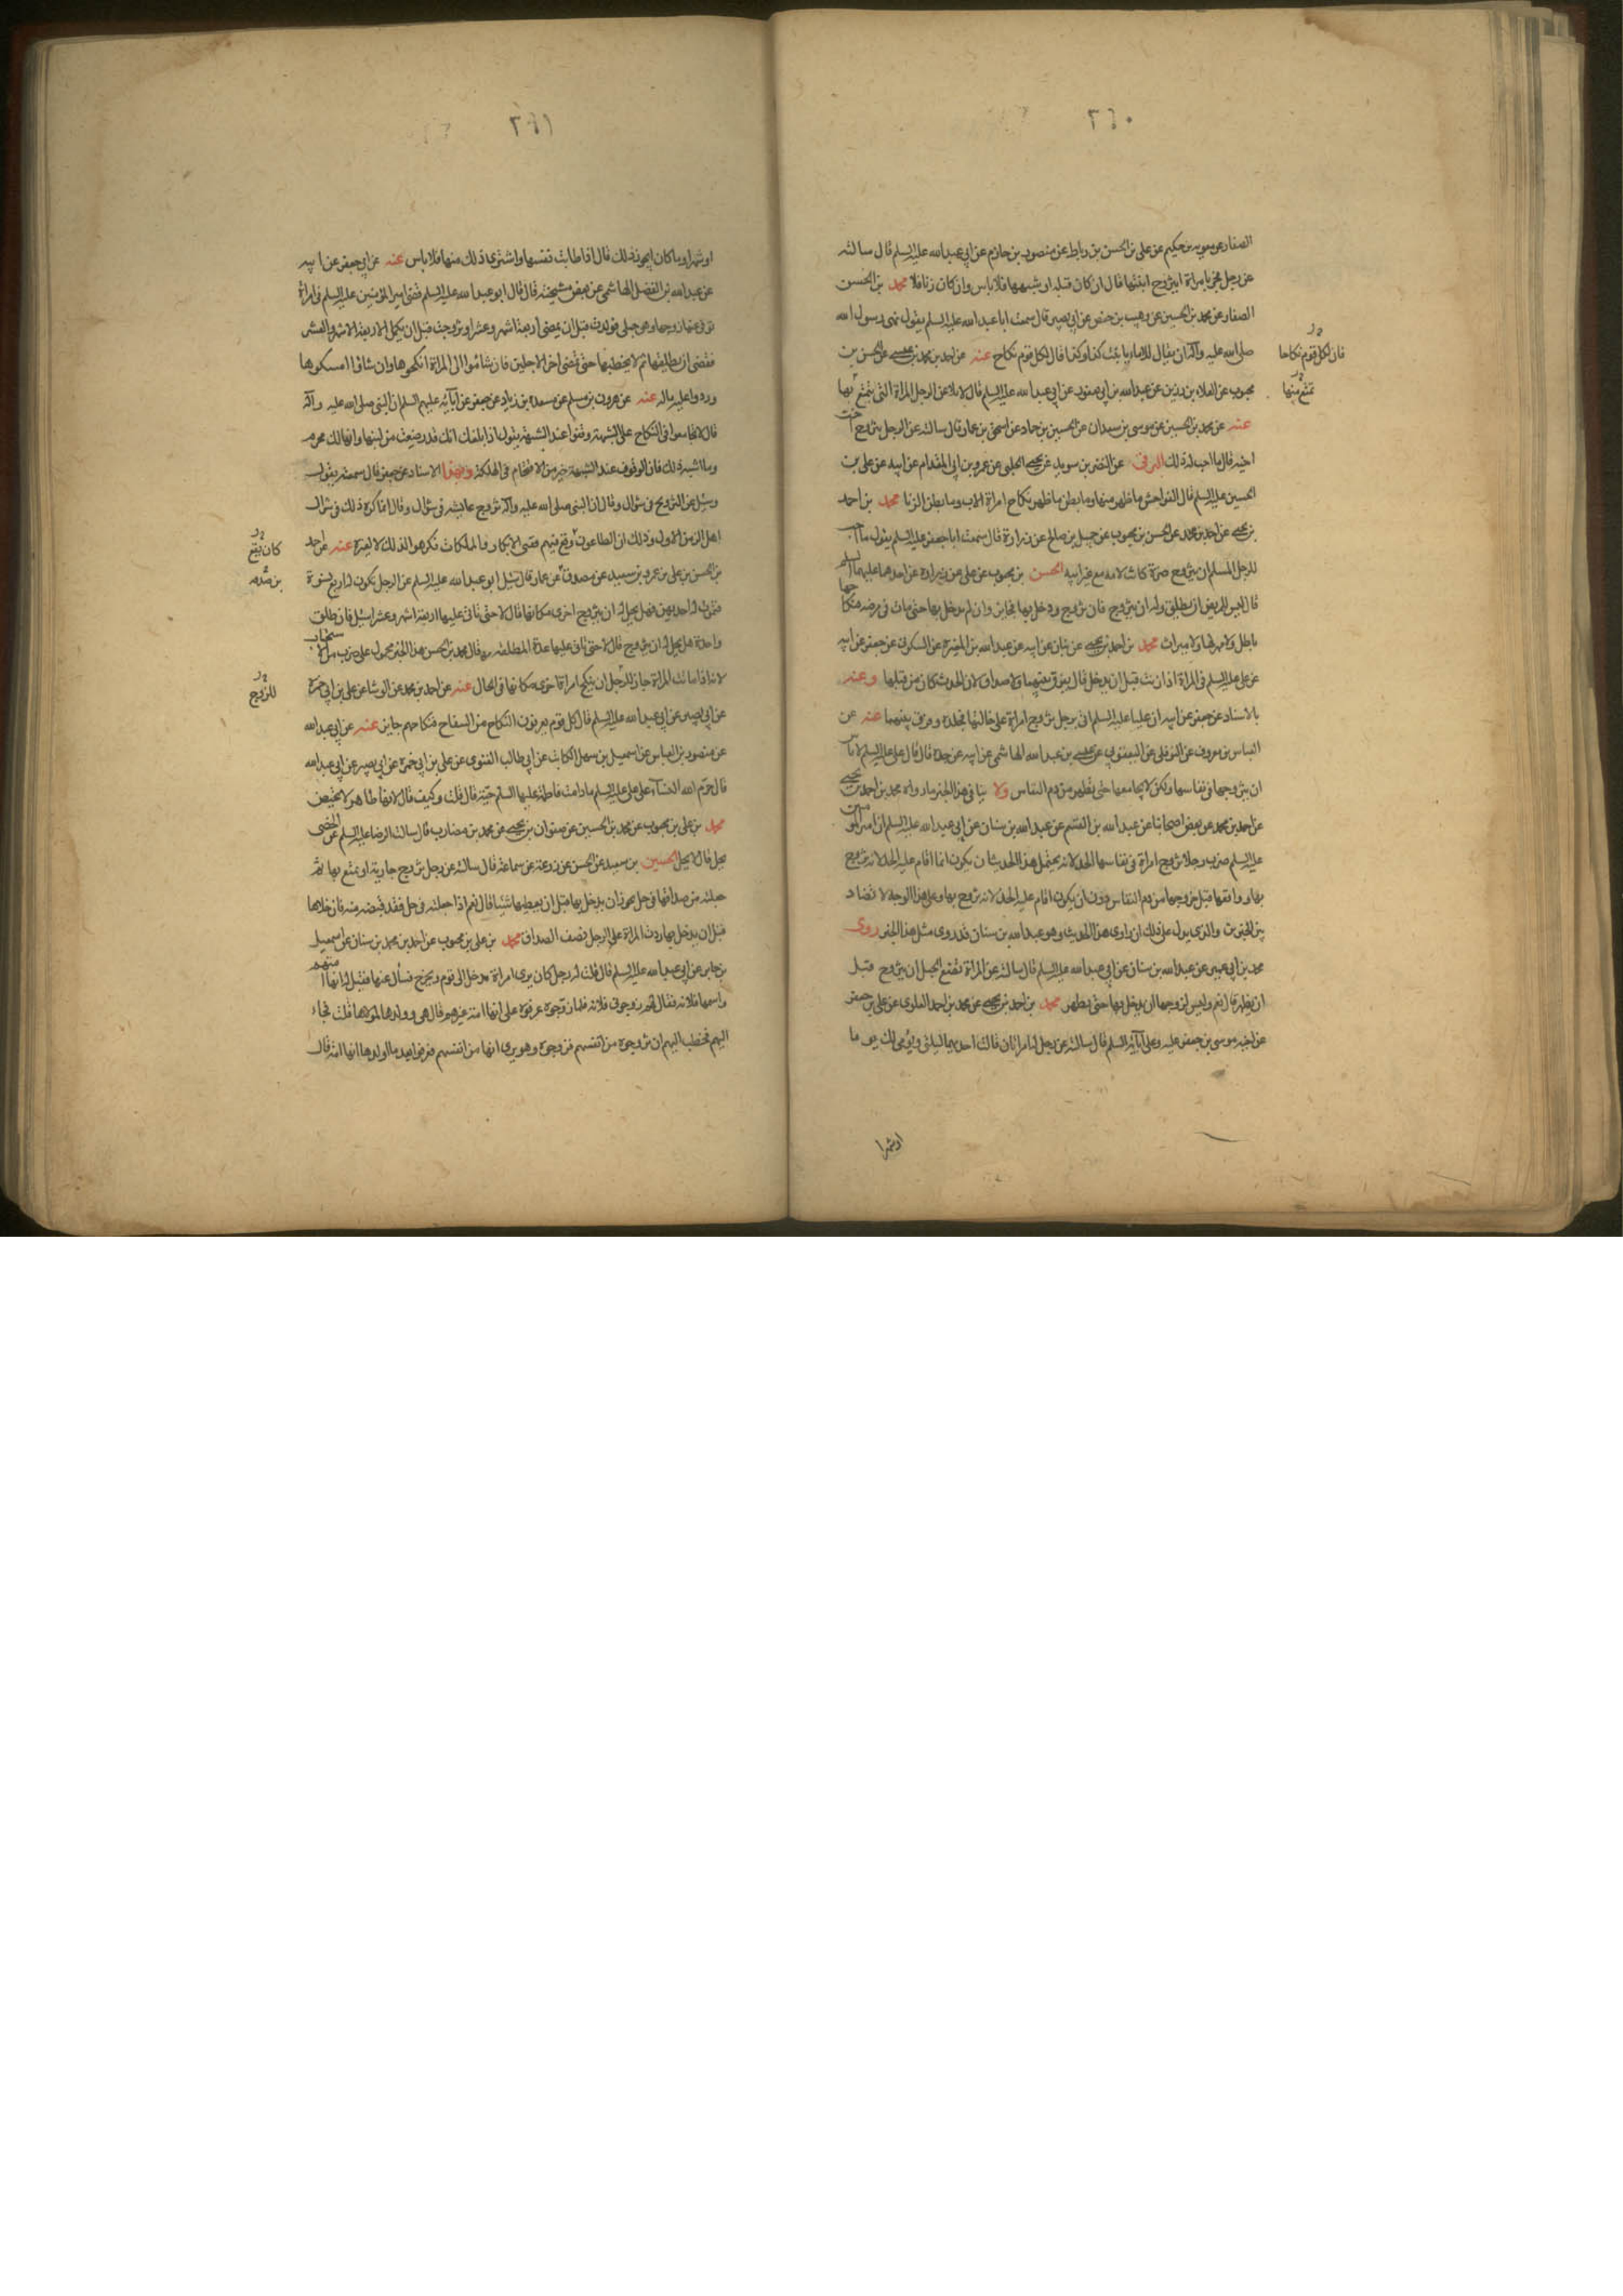 ٢٤٠
الصفار عن معوية بن حكيم عن علي بن الحسن بن رباط عن منصور بن حازم عن ابي عبد الله عليه السلم قال سالته
عن رجل فجر بامراة ايتزوج ابنتها قال ان كان قبلة او شبهها فلا باس وان كان زنا فلا محمد بن الحسن
الصفار عن محمد بن الحسين عن وهيب بن حفص عن ابي بصير قال سمعت ابا عبد الله عليه السلم يقول نهى رسول الله
صلى الله عليه وآله ان يقال للاماء يا بنت كذا وكذا قال لكل قوم نكاح عنه عن احمد بن محمد بن عيسى عن الحسن بن
فان لكل قوم نكاحا
محبوب عن العلاء بن رزين عن عبد الله بن ابي يعفور عن ابي عبد الله عليه السلم قال لا عن الرجل المراة التي يتمتع بها
تمتع منها
عنه عن محمد بن الحسين عن موسى بن سعدان عن الحسين بن حماد عن اسحق بن عمار قال سالته عن الرجل يتزوج اخت
اخيه قال ما احب له ذلك البرقي عن النضر بن سويد عن يحيى الحلبي عن عمرو بن ابي المقدام عن ابيه عن علي بن
الحسين عليه السلم قال الفواحش ما ظهر منها وما بطن ما ظهر نكاح امراة الاب وما بطن الزنا محمد بن احمد
بن يحيى عن احمد بن محمد عن الحسن بن محبوب عن جميل بن صالح عن زرارة قال سمعت ابا جعفر عليه السلم يقول ما احب
للرجل المسلم ان يتزوج ضرة كانت لامه مع غير ابيه الحسن بن محبوب عن علي عن زرارة عن احدهما عليهما السلم
قال ليس للمريض ان يطلق وله ان يتزوج فان تزوج ودخل بها فجايز وان لم يدخل بها حتى مات في مرضه فنكاحها
باطل ولا مهر لها ولا ميراث محمد بن احمد بن يحيى عن بنان عن ابيه عن عبد الله بن المغيرة عن السكوني عن جعفر عن ابيه
عن علي عليه السلم في المراة اذا زنت قبل ان يدخل قال يفرق بينهما ولا صداق لان الحدث كان من قبلها وعنه
بالاسناد عن جعفر عن ابيه ان عليا عليه السلم اتي برجل تزوج امراة على خالتها فجلده وفرق بينهما عنه عن
العباس بن معروف عن النوفلي عن اليعقوبي عن عيسى بن عبد الله الهاشمي عن ابيه عن جده قال قال علي عليه السلم لا باس
ان يتزوجها في نفاسها ولكن لا يجامعها حتى تطهر من دم النفاس ولا ينافي هذا الخبر ما رواه محمد بن احمد بن يحيى
عن احمد بن محمد عن بعض اصحابنا عن عبد الله بن القسم عن عبد الله بن سنان عن ابي عبد الله عليه السلم ان امير المومنين
عليه السلم ضرب رجلا تزوج امراة في نفاسها الحد لانه يحتمل هذا الحديث ان يكون انما اقام عليه الحد لانه تزوج
بها وواقعها قبل خروجها من دم النفاس دون ان يكون اقام عليه الحد لانه تزوج بها وعلى هذا الوجه لا تضاد
بين الخبرين والذي يدل على ذلك ان راوي هذا الحديث وهو عبد الله بن سنان قد روى مثل هذا الخبر روى
محمد بن ابي عمير عن عبد الله بن سنان عن ابي عبد الله عليه السلم قال سالته عن المراة تضع ايحل ان يتزوج قبل
ان تطهر قال نعم وليس لزوجها ان يدخل بها حتى تطهر محمد بن احمد بن يحيى عن محمد بن احمد العلوي عن علي بن جعفر
عن اخيه موسى بن جعفر عليه وعلى آبائه السلم قال سالته عن رجل له امراتان قالت احديهما ليلتي ويومي لك يوما
او شهرا
٢٤١
او شهرا وما كان ايجوز ذلك قال اذا طابت نفسها واشترى ذلك منها فلا باس عنه عن ابي جعفر عن ابيه
عن عبد الله بن الفضل الهاشمي عن بعض مشيخته قال قال ابو عبد الله عليه السلم قضى امير المؤمنين عليه السلم في امراة
توفي عنها زوجها وهي حبلى فولدت قبل ان يمضي اربعة اشهر وعشر او تزوجت قبل ان يكمل الاربعة الاشهر والعشر
فقضى ان يطلقها ثم لا يخطبها حتى تمضي اخر الاجلين فان شاءوا الى المراة انكحوها وان شاؤا امسكوها
وردوا عليه ماله عنه عن هرون بن مسلم عن مسعدة بن زياد عن جعفر عن آبائه عليهم السلم ان النبي صلى الله عليه وآله
قال لا تجامعوا في النكاح على الشبهة وقفوا عند الشبهة يقول اذا بلغك انك قد رضعت من لبنها وانها لك محرم
وما اشبه ذلك فان الوقوف عند الشبهة خير من الاقتحام في الهلكة وبهذا الاسناد عن جعفر قال سمعته يقول
وسئل عن التزويج في شوال وقال ان النبي صلى الله عليه وآله تزوج عايشة في شوال وقال انما كره ذلك في شوال
اهل الزمن الاول وذلك ان الطاعون وقع فيهم ففنى الابكار والمملكات فكرهوا لذلك لا لغيره عنه عن احمد
كان يقع
بن الحسن بن علي عن عمرو بن سعيد عن مصدق عن عمار قال سئل ابو عبد الله عليه السلم عن الرجل يكون له اربع نسوة
بن صدقه
فتموت احديهن فهل يحل له ان يتزوج اخرى مكانها قال لا حتى تاتي عليها اربعة اشهر وعشر اسئل فان طلق
واحدة هل يحل له ان يتزوج قال لا حتى تاتي عليها عدة المطلقة قال محمد بن الحسن هذا الخبر محمول على ضرب من الاستحباب
لانه اذا ماتت المراة جاز للرجل ان ينكح امراة اخرى مكانها في الحال عنه عن احمد بن محمد عن الوشا عن علي بن ابي حمزة
للزوج
عن ابي بصير عن ابي عبد الله عليه السلم قال كل قوم يعرفون النكاح من السفاح فنكاحهم جايز عنه عن ابي عبد الله
عن منصور بن العباس عن اسمعيل بن سهل الكاتب عن ابي طالب الغنوي عن علي بن ابي حمزة عن ابي بصير عن ابي عبد الله
قال حرم الله النساء على علي عليه السلم ما دامت فاطمة عليها السلم حية قال قلت وكيف قال لانها طاهر لا تحيض
محمد بن علي بن محبوب عن محمد بن الحسين عن صفوان بن يحيى عن محمد بن مضارب قال سالت الرضا عليه السلم عن الخصي
يحل قال لا يحل الحسين بن سعيد عن الحسن عن زرعة عن سماعة قال سالته عن رجل تزوج جارية او تمتع بها ثم
جعلته من صداقها في حل يجوز ان يدخل بها قبل ان يعطيها شيئا قال نعم اذا جعلته في حل فقد قبضته منه فان خلاها
قبل ان يدخل بها ردت المراة على الرجل نصف الصداق محمد بن علي بن محبوب عن احمد بن محمد عن محمد بن سنان عن اسمعيل
بن جابر عن ابي عبد الله عليه السلم قال قلت له رجل كان يرى امراة تدخل الى قوم وتخرج فسأل عنها فقيل له انها امتهم
واسمها فلانة فقال لهم زوجوني فلانة فلما زوجوه عرفوه على انها امة غيرهم قال هي وولدها لمولاها قلت فجاء
اليهم فخطب اليهم ان يزوجوه من انفسهم فزوجوه وهو يرى انها من انفسهم فعرفوا بعد ما اولدها انها امة قال